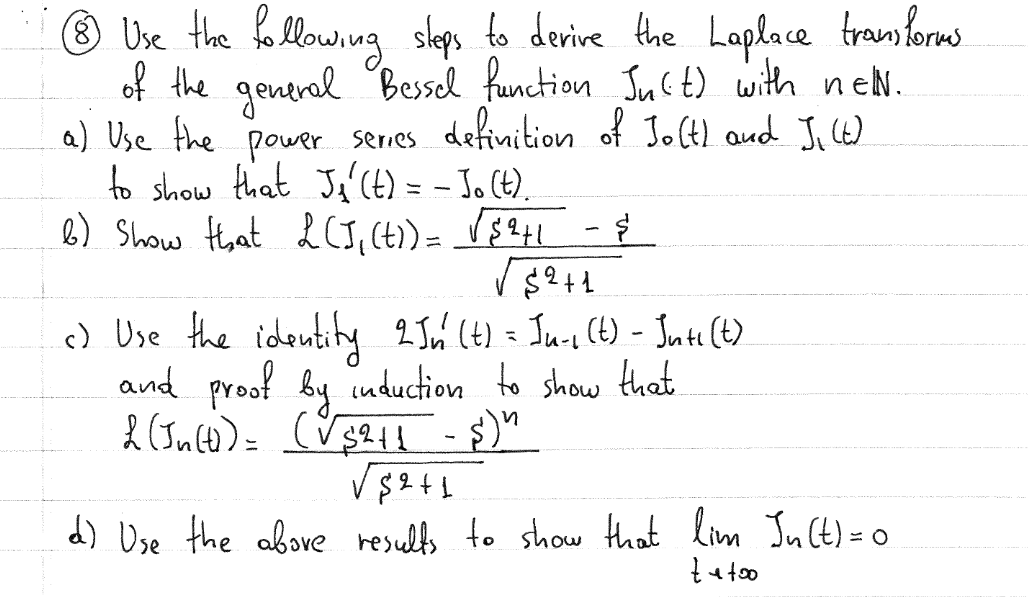 ⑧ Use the following steps to derive the Laplace transforms
of the general Bessel function Jn(t) with n∈ℕ.
a) Use the power series definition of J₀(t) and J₁(t)
to show that J₁'(t) = - J₀(t).
b) Show that ℒ(J₁(t)) = (√(s²+1) - s) / √(s²+1)
c) Use the identity 2Jn'(t) = Jn-1(t) - Jn+1(t)
and proof by induction to show that
ℒ(Jn(t)) = (√(s²+1) - s)ⁿ / √(s²+1)
d) Use the above results to show that lim Jn(t) = 0
t→+∞